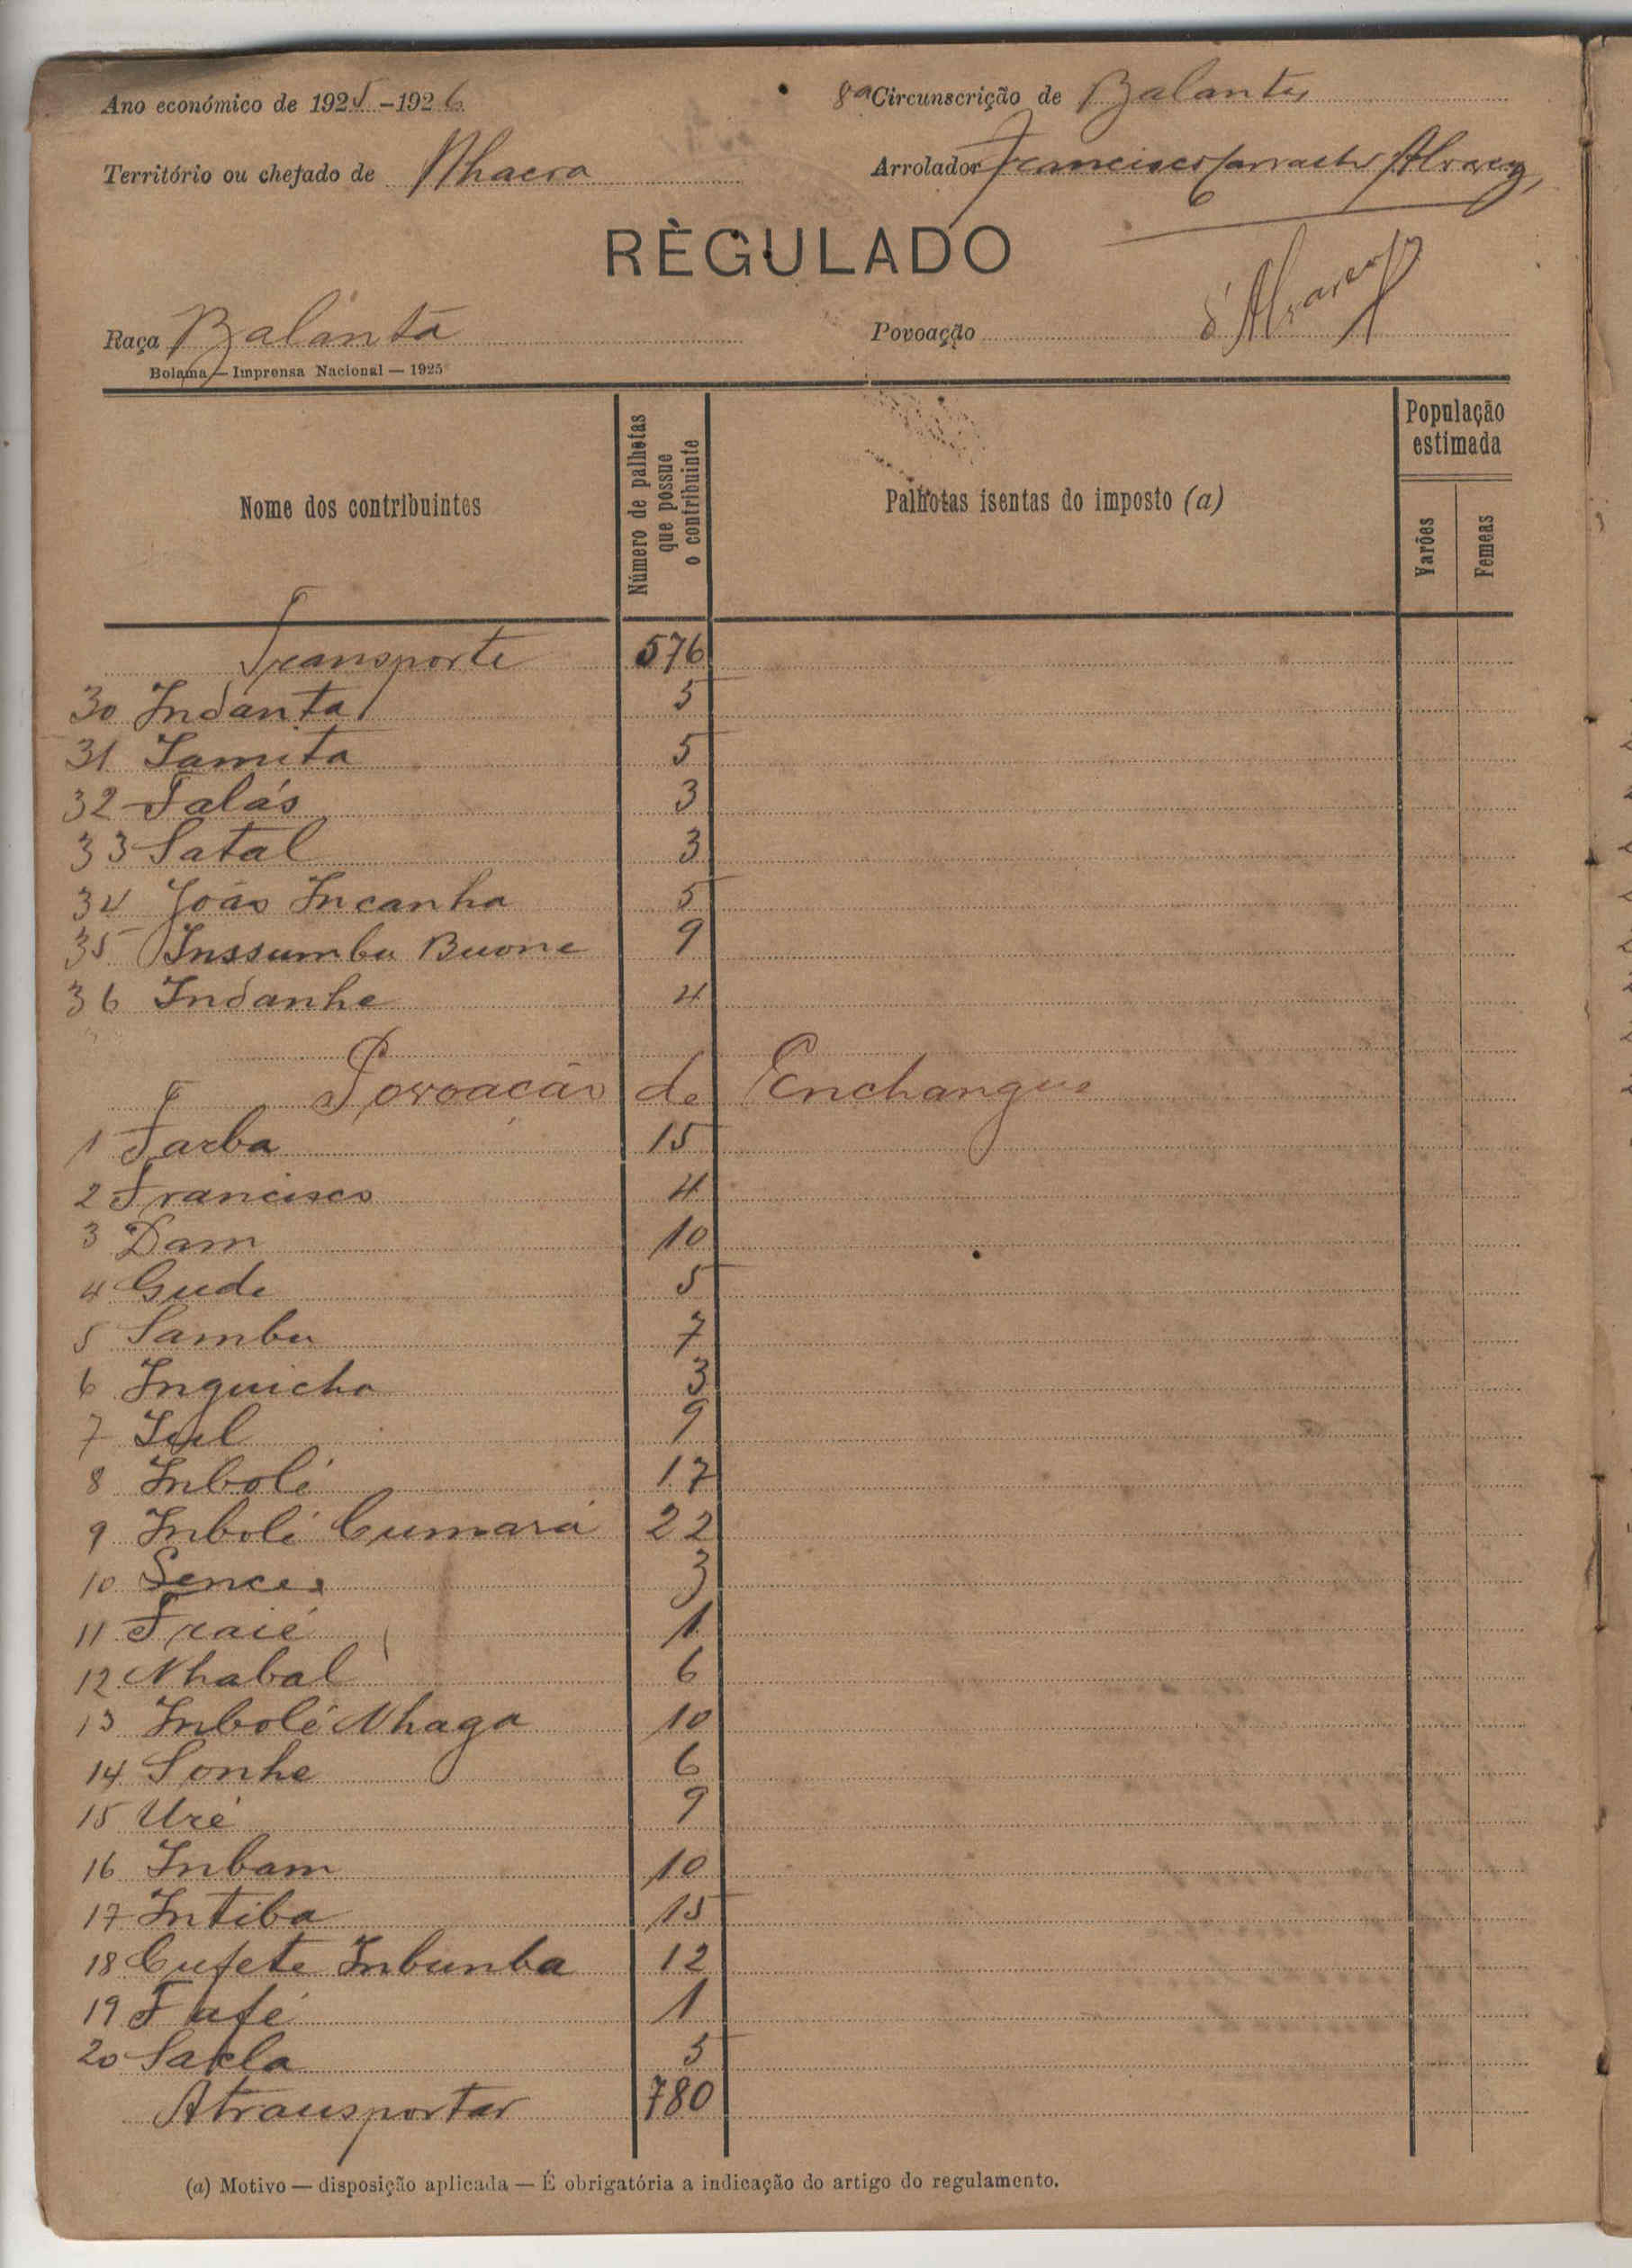 Ano económico de 1925-1926
8ª Circunscrição de Balantas
Território ou chefado de Nhacra
Arrolador Francisco Alvarez
RÈGULADO
Raça Balanta
Povoação
Alvarez
Bolama — Imprensa Nacional — 1925
Nome dos contribuintes
Número de palhotas que possue o contribuinte
Palhotas isentas do imposto (a)
População estimada
Varões
Femeas
Transporte 576
30 Indanta 5
31 Samita 5
32 Talás 3
33 Satal 3
34 João Incanha 5
35 Inssumbu Buone 9
36 Indanhe 4
Povoacão de Enchangue
1 Tarba 15
2 Francisco 4
3 Dam 10
4 Gude 5
5 Sambu 7
6 Inquicho 3
7 9
8 Inbolé 17
9 Inbolé Cumará 22
10 3
11 Fraié 1
12 Nhabal 6
13 Inbolé Nhaga 10
14 Sonhe 6
15 Uré 9
16 Inbam 10
17 Intiba 15
18 Cufete Inbunba 12
19 Fafé 1
20 Sakla 5
A transportar 780
(a) Motivo — disposição aplicada — É obrigatória a indicação do artigo do regulamento.